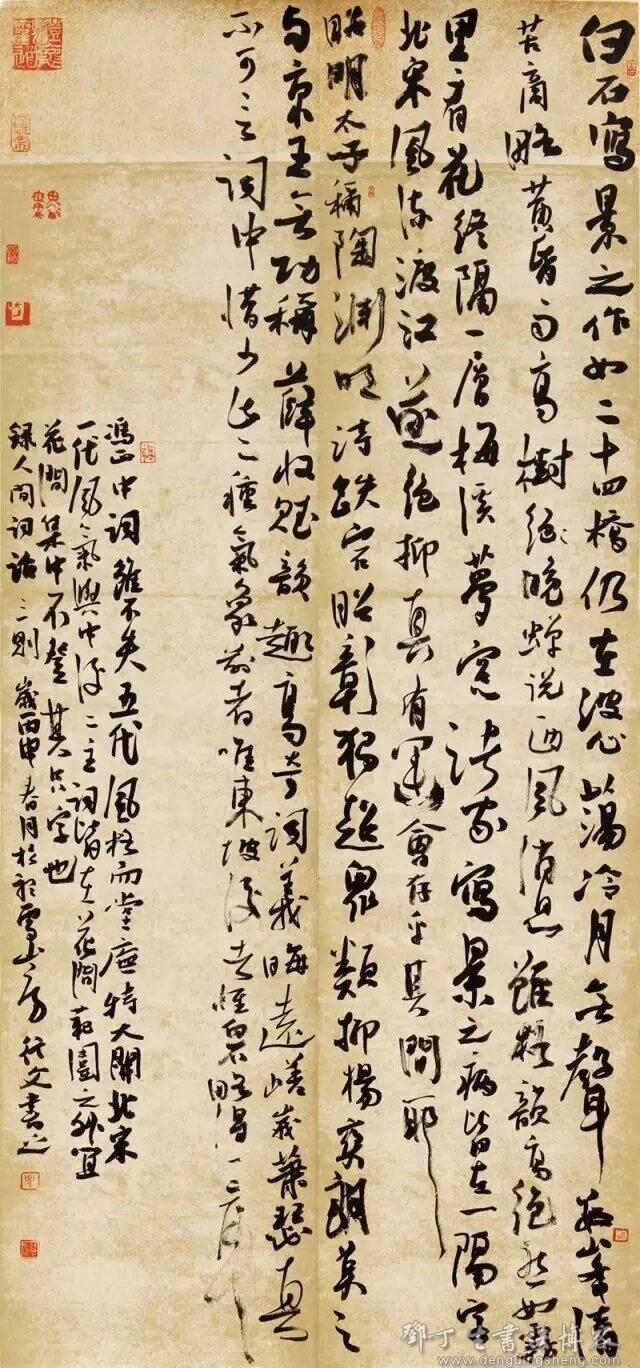 白石寫景之作如二十四橋仍在波心蕩冷月無聲數峯清
苦商略黃昏雨高樹絕晚蟬說西風消息雖格韻高絕然如霧
里看花終隔一層梅溪夢窗諸家寫景之病皆在一隔字
北宋風流渡江遂絕抑真有運會存乎其間耶
昭明太子稱陶淵明詩跌宕昭彰獨超眾類抑揚爽朗莫之
與京王無功稱薛收賦韻趣高奇詞義晦遠嵯峨蕭瑟真
不可言詞中惜少此二種氣象前者唯東坡後者惟白石略得一二耳
馮正中詞雖不失五代風格而堂廡特大開北宋
一代風氣與中後二主詞皆在花間範圍之外宜
花間集中不登其只字也
錄人間詞話三則 歲丙申春月於 雲山房 文書
鄧丁生書法博客
www.dengdingsheng.com